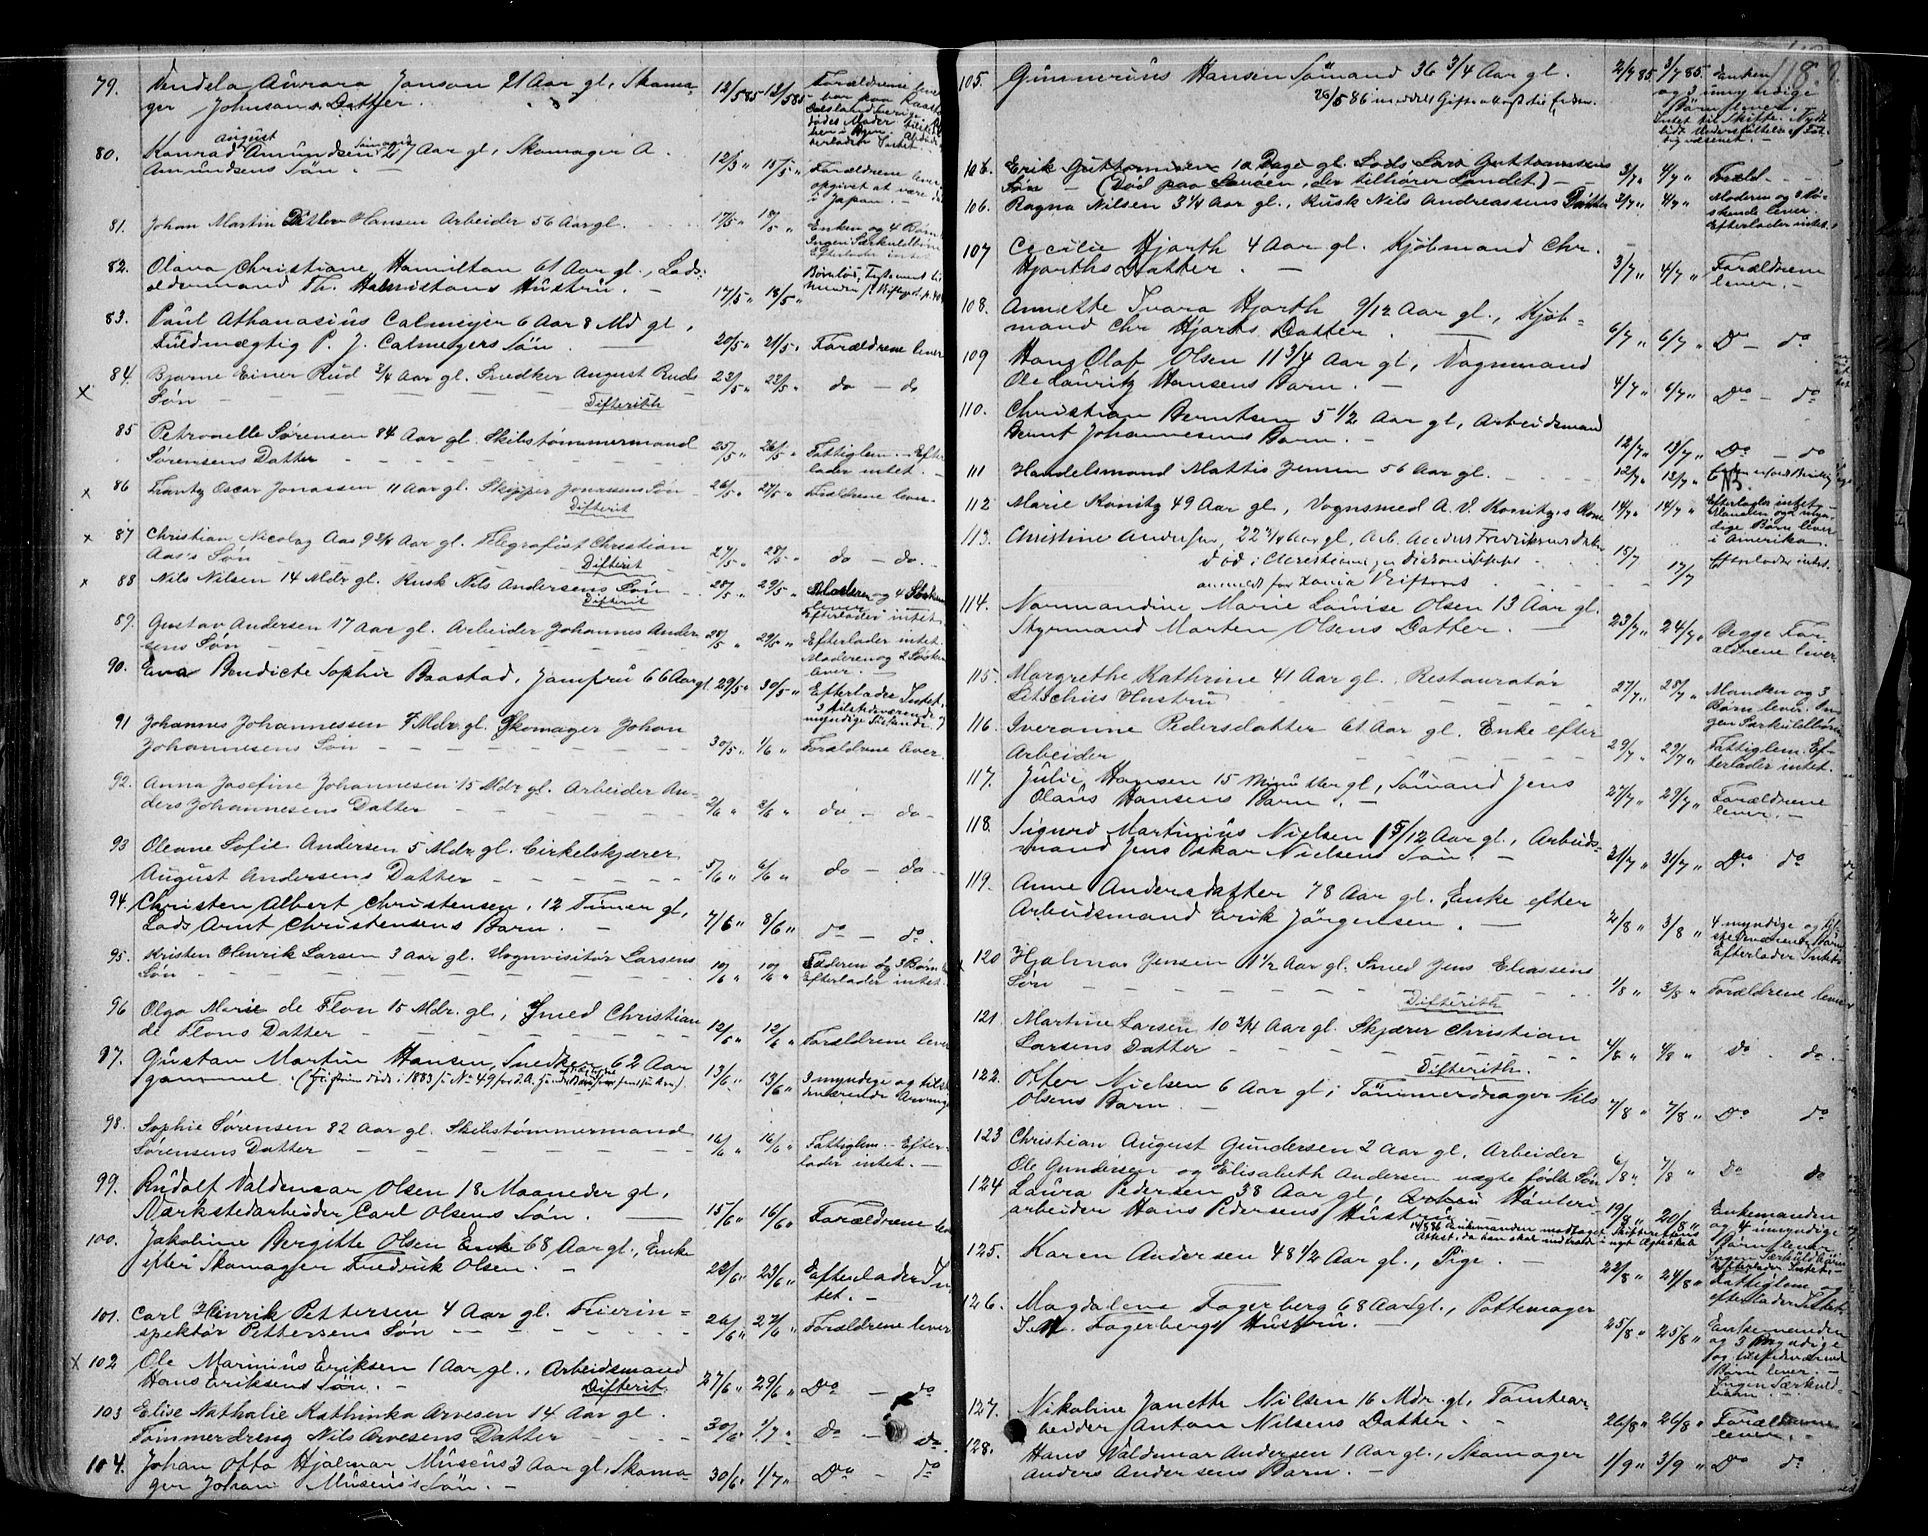 79. Vendela Aurora Jonson 21 Aar gl., Skoma-
ger Johnsons Datter. 12/5 85 12/5 85 Forældrene lever
80. Konrad August Amundsen 27 Aar gl., Skomager A.
Amundsens Søn. 12/3 " 15/5 " Forældrene lever
opgivet at være død
i Japan.
81. Johan Martin Ditlev Hansen Arbeider 56 Aar gl. 17/5 " 18/5 " Enken og 4 Børn
Ingen Særkuldbørn
Efterlader intet
82. Olava Christiane Hamilton 61 Aar gl., Lods-
oldermand Th. Hamiltons Hustru. 17/5 " 18/5 " Børnløs, Testament
83. Paul Athanasius Calmeyer 6 Aar 8 Md gl,
Fuldmægtig P. J. Calmeyers Søn. 20/5 " 21/5 " Forældrene lever
x 84. Bjarne Einer Rud 3/4 Aar gl. Snedker August Ruds
Søn Difterith 23/5 " 23/5 " do - do
85 Petronelle Sørensen 84 Aar gl. Skibstømmermand
Sørensens Datter 25/5 " 26/5 " Fattiglem. - Efter
lader intet.
x 86 Frantz Oscar Jonassen 11 Aar gl. Skipper Jonassens Søn 26/5 " 27/5 " Forældrene lever.
Difterit
x 87 Christian Nicolay Aas 9 3/4 Aar gl. Telegrafist Christian
Aas's Søn Difterit 27/5 " 28/5 " do - do.
x 88 Nils Nilsen 14 Mdr gl. Kusk Nils Andersens Søn
Difterit 28/5 " 29/5 " Moderen og 4 Søskende
lever
Efterlader intet.
89. Gustav Andersen 17 Aar gl. Arbeider Johannes Ander-
sens Søn 28/5 " 29/5 " Efterlader intet.
Moderen og 2 Søsken
lever.
90. Eva Bendicte Sophie Baastad, Jomfru 66 Aar gl. 29/5 " 30/5 " Efterlader Intet,
3 tilstedeværende
myndige Søskende.
91 Johannes Johannessen 7 Mdr. gl. Skomager Johan
Johannesens Søn 30/5 " 1/6 " Forældrene lever.
92. Anna Josefine Johannesen 15 Mdr gl. Arbeider An-
ders Johannesens Datter 2/6 " 2/6 " do - do -
93 Oleane Sofie Andersen 5 Mdr. gl. Cirkelskjærer
August Andersens Datter 5/6 " 6/6 " do - do -
94. Christen Albert Christensen, 12 Timer gl,
Lods Arnt Christensens Barn. 7/6 " 8/6 " do - do.
95. Kristen Henrik Larsen 3 Aar gl. Vognvisitør Larsens
Søn 10/6 " 10/6 " Faderen og 3 Børn
Efterlader intet.
96 Olga Marie de Flon 15 Mdr. gl, Smed Christian
de Flons Datter 12/6 " 12/6 " Forældrene lever
97. Gustav Martin Hansen, Snedker 62 Aar
gammel. 13/6 " 13/6 " 3 myndige og tilste
deværende Arvinge
98. Sophie Sørensen 82 Aar gl. Skibstømmermand
Sørensens Datter 16/6 " 16/6 " Fattiglem. - Efter-
lader intet.
99. Rudolf Valdemar Olsen 18 Maaneder gl,
Værkstedarbeider Carl Olsens Søn. 15/6 " 16/6 " Forældrene lev
100. Jakoline Bergitte Olsen Enke 68 Aar gl., Enke
efter Skomager Fredrik Olsen. 22/6 " 23/6 " Efterlader In-
tet. -
101. Carl Henrik Pettersen 4 Aar gl. Fyrin-
spektør Pettersens Søn 26/6 " 27/6 " Forældrene lever
x 102 Ole Marinius Eriksen 1 Aar gl., Arbeidsmand
Hans Eriksens Søn. - Difterit. 27/6 " 29/6 " Do - do
103 Elise Nathalie Kathinka Arvesen 14 Aar gl.
Tømmerdreng Nils Arvesens Datter 30/6 " 1/7 " Do - do.
104. Johan Otto Hjalmar Musæus 3 Aar gl, Skoma-
ger Johan Musæus's Søn. - 30/6 " 1/7 " Do - do
118.
105. Gunnerius Hansen Sømand 36 3/4 Aar gl. 2/7 85 3/7 85. Enken
og 3 umyndige
Børn lever.
26/5 86 meddelt Gifteattest til Enken.
Intet til Skifte. Nydt
lidt Understøttelse af Fat-
tigvæsenet. -
106. Erik Guttormsen 10 Dage gl. Lods Lars Guttormsens
Søn - (Død paa Langøen, der tilhører Landet) - 3/7 " 4/7 " Foræld.
106. Ragna Nilsen 3 1/4 Aar gl., Kusk Nils Andreassens Datter 2/7 " 4/7 " Moderen og 3 Sø-
skende lever.
Efterlader intet.
107 Cecilie Hjorth 4 Aar gl. Kjøbmand Chr.
Hjorths Datter. - 3/7 " 4/7 " Forældrene
lever. -
108. Annette Tvara Hjorth 9/12 Aar gl., Kjøb-
mand Chr Hjorts Datter. 6/7 " 6/7 " Do - do
109 Hans Olaf Olsen 11 3/4 Aar gl, Vognmand
Ole Lauritz Hansens Barn. - 4/7 " 6/7 " Do - do
110. Christian Berntsen 5 1/2 Aar gl, Arbeidsmand
Bernt Johannesens Barn. - 12/7 " 13/7 " Do - do
111 Handelsmand Mattis Jensen 56 Aar gl. 12/7 " 13/7 "
NB.
112 Marie Konitz 49 Aar gl, Vognsmed A. V. Konitz's Kone 14/7 " 14/7 " Efterlader intet
Manden og 2 myn-
dige Børn lever
i Amerika.
113. Christine Andersen, 22 3/4 Aar gl, Arb. Anders Fredriksens Datter
død i Christiania Diakonissehus
anmeldt for Xania Skifteret 15/7 17/7 Efterlader intet.
114. Normandine Marie Louise Olsen 13 Aar gl.
Styrmand Morten Olsens Datter. 23/7 " 24/7 " Begge For-
ældrene lever
115. Margrethe Kathrine 41 Aar gl. Restauratør
Letschius Hustru 27/7 " 28/7 " Manden og 3
Børn lever. In-
gen Særkuldbørn
116. Iveranne Pedersdatter 61 Aar gl. Enke efter
Arbeider 29/7 " 29/7 " Fattiglem. Ef-
terlader intet.
117. Julie Hansen 15 Minutter gl, Sømand Jens
Olaus Hansens Barn. - 27/7 " 29/7 " Forældrene
lever. -
118. Sigurd Martinius Nielsen 1 5/12 Aar gl., Arbeids-
mand Jens Oskar Nielsens Søn. - 31/7 " 31/7 " Do do
119. Anne Andersdatter 78 Aar gl. Enke efter
Arbeidsmand Erik Jørgensen. 2/8 " 3/8 " 4 myndige og til-
stedeværende Børn
efterlader Intet.
120 Hjalmar Jensen 1 1/2 Aar gl. Smed Jens Eliassens
Søn 1/8 " 3/8 " Forældrene lever
Difterith
121 Martine Larsen 10 3/4 Aar gl. Skjærer Christian
Larsens Datter 4/8 " 4/8 " Do - do.
Difterith.
122. Peter Nielsen 6 Aar gl; Tømmerdrager Nils
Olsens Barn. - 7/8 " 7/8 " Do do
123 Christian August Gundersen 2 Aar gl. Arbeider
Ole Gundersen og Elisabeth Andersen uægte fødte Søn 6/8 " 7/8 " Do do
124 Laura Pedersen 38 Aar gl, Høvleri-
arbeider Hans Pedersens Hustru 19/8 " 20/8 " Enkemanden
og 4 umyndige
Børn lever
Ingen Særkuldbørn
Efterlader Intet. -
14/8 86 Enkemanden modtaget Skifterettens
Attest, da han skal indtræde i nyt Ægteskab
125. Karen Andersen 48 1/2 Aar gl., Pige. - 22/8 " 24/8 " Fattiglem
efterlader Intet.
126. Magdalene Fagerberg 68 Aar gl., Pottemager
I. M. Fagerbergs Hustru. - 25/8 " 25/8 " Enkemanden
og 3 Myndige
og tilstedeværende
Børn lever. -
Ingen Særkuld-
børn. -
127. Nikoline Janette Nielsen 16 Mdr. gl, Tomtear-
beider Anton Nilsens Datter. 26/8 " 26/8 " Forældrene
lever. -
128. Hans Valdemar Andersen 1 Aar gl., Skomager
Anders Andersens Barn. - 1/9 " 3/9 " Do do